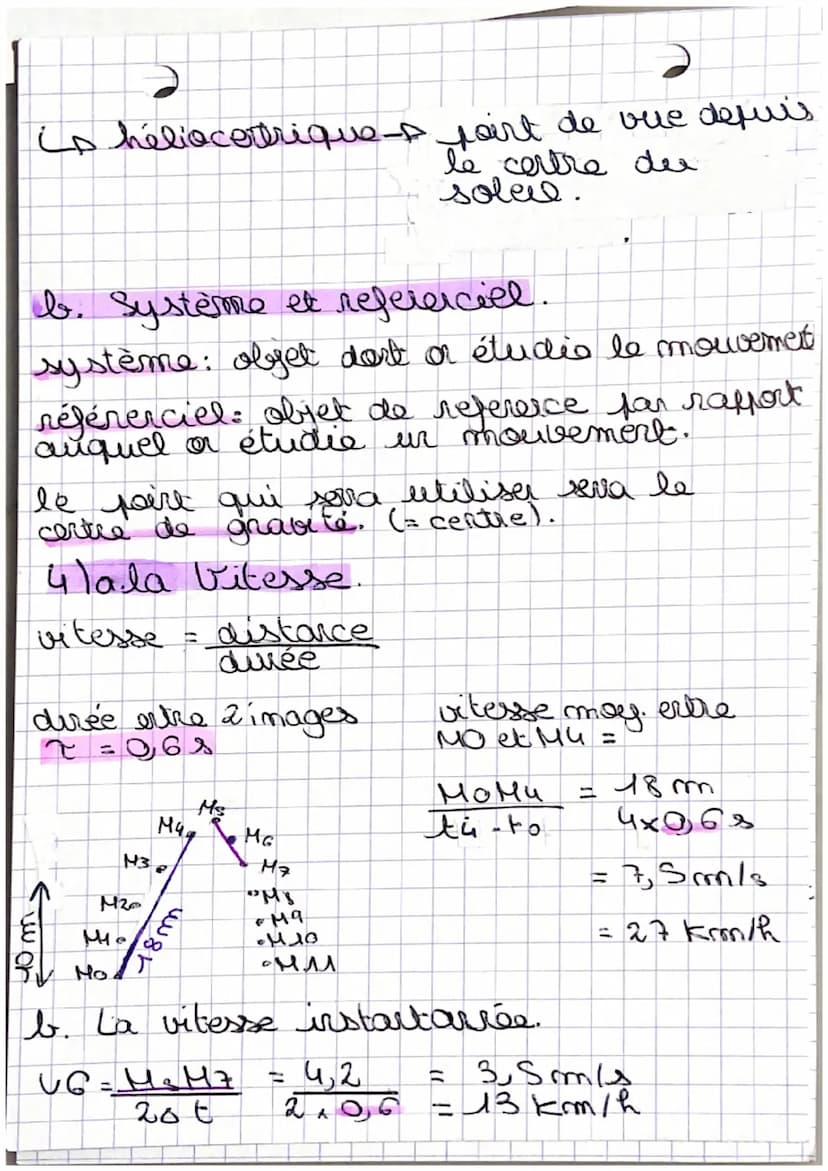 ↳ héliocentrique → point de vue depuis
le centre du
soleil.
b. Système et referenciel.
système: objet dont on étudie le mouvement
référenciel: objet de reference par rapport
auquel on étudie un mouvement.
le point qui sera utiliser sera le
centre de gravité. (= centre).
4) a. la Vitesse.
vitesse = distance
durée
durée entre 2 images
τ = 0,6 s
vitesse moy. entre
M0 et M4 =
M0M4 = 18 m
t4 - t0 4x0,6 s
= 7,5 m/s
= 27 Km/h
M5
M4
M6
M3
M7
M2
M8
M9
M1
M10
M0
M11
18m
b. La vitesse instantannée.
V6 = M5M7 = 4,2 = 3,5 m/s
2Δt 2 x 0,6 = 13 km/h